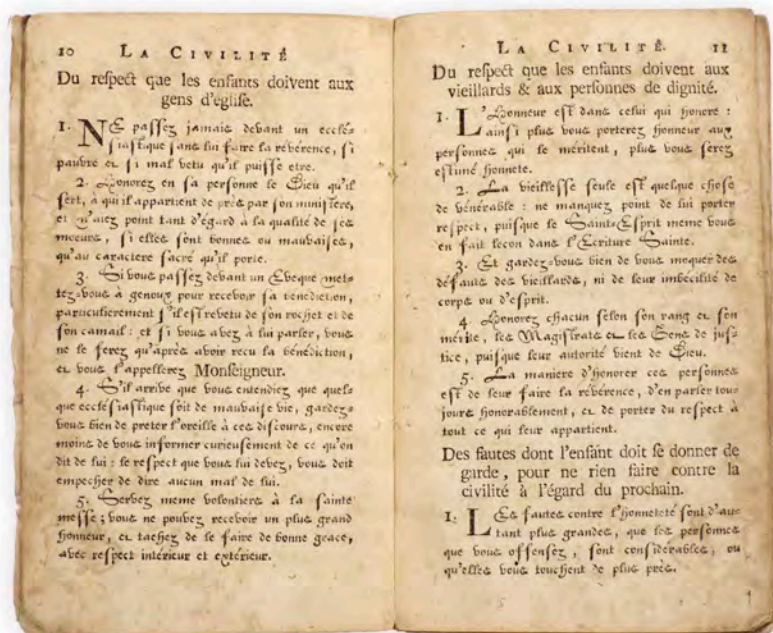 10 LA CIVILITÉ
Du respect que les enfants doivent aux
gens d'eglise.
1. NE passez jamais devant un ecclé-
siastique sans lui faire la révérence, si
pauvre et si mal vetu qu'il puisse etre.
2. Honorez en sa personne le Dieu qu'il
sert, à qui il appartient de près par son ministère,
et n'aiez point tant d'égard à la qualité de ses
moeurs, si elles sont bonnes ou mauvaises,
qu'au caractere sacré qu'il porte.
3. Si vous passez devant un Eveque met-
tez-vous à genoux pour recevoir sa bénédiction,
particulierement s'il est revetu de son rochet et de
son camail : et si vous avez à lui parler, vous
ne le ferez qu'après avoir recu la bénédiction,
et vous l'appellerez Monseigneur.
4. S'il arrive que vous entendiez que quel-
que ecclésiastique soit de mauvaise vie, gardez-
vous bien de preter l'oreille à ces discours, encore
moins de vous informer curieusement de ce qu'on
dit de lui : le respect que vous lui devez, vous doit
empecher de dire aucun mal de lui.
5. Servez meme volontiers à la sainte
messe ; vous ne pouvez recevoir un plus grand
honneur, et tachez de le faire de bonne grace,
avec respect intérieur et extérieur.
LA CIVILITÉ. 11
Du respect que les enfants doivent aux
vieillards & aux personnes de dignité.
1. L'Honneur est dans celui qui honore :
ainsi plus vous porterez honneur aux
personnes qui le méritent, plus vous serez
estimé honnete.
2. La vieillesse seule est quelque chose
de vénérable : ne manquez point de lui porter
respect, puisque le Saint-Esprit meme vous
en fait lecon dans l'Ecriture Sainte.
3. Et gardez-vous bien de vous moquer des
défauts des vieillards, ni de leur imbécilité de
corps ou d'esprit.
4 Honorez chacun selon son rang et son
mérite, les Magistrats et les Gens de jus-
tice, puisque leur autorité vient de Dieu.
5. La maniere d'honorer ces personnes
est de leur faire la révérence, d'en parler tou-
jours honorablement, et de porter du respect à
tout ce qui leur appartient.
Des fautes dont l'enfant doit se donner de
garde, pour ne rien faire contre la
civilité à l'égard du prochain.
1. LEs fautes contre l'honneteté sont d'au-
tant plus grandes, que les personnes
que vous offensez, sont considérables, ou
qu'elles vous touchent de plus près.